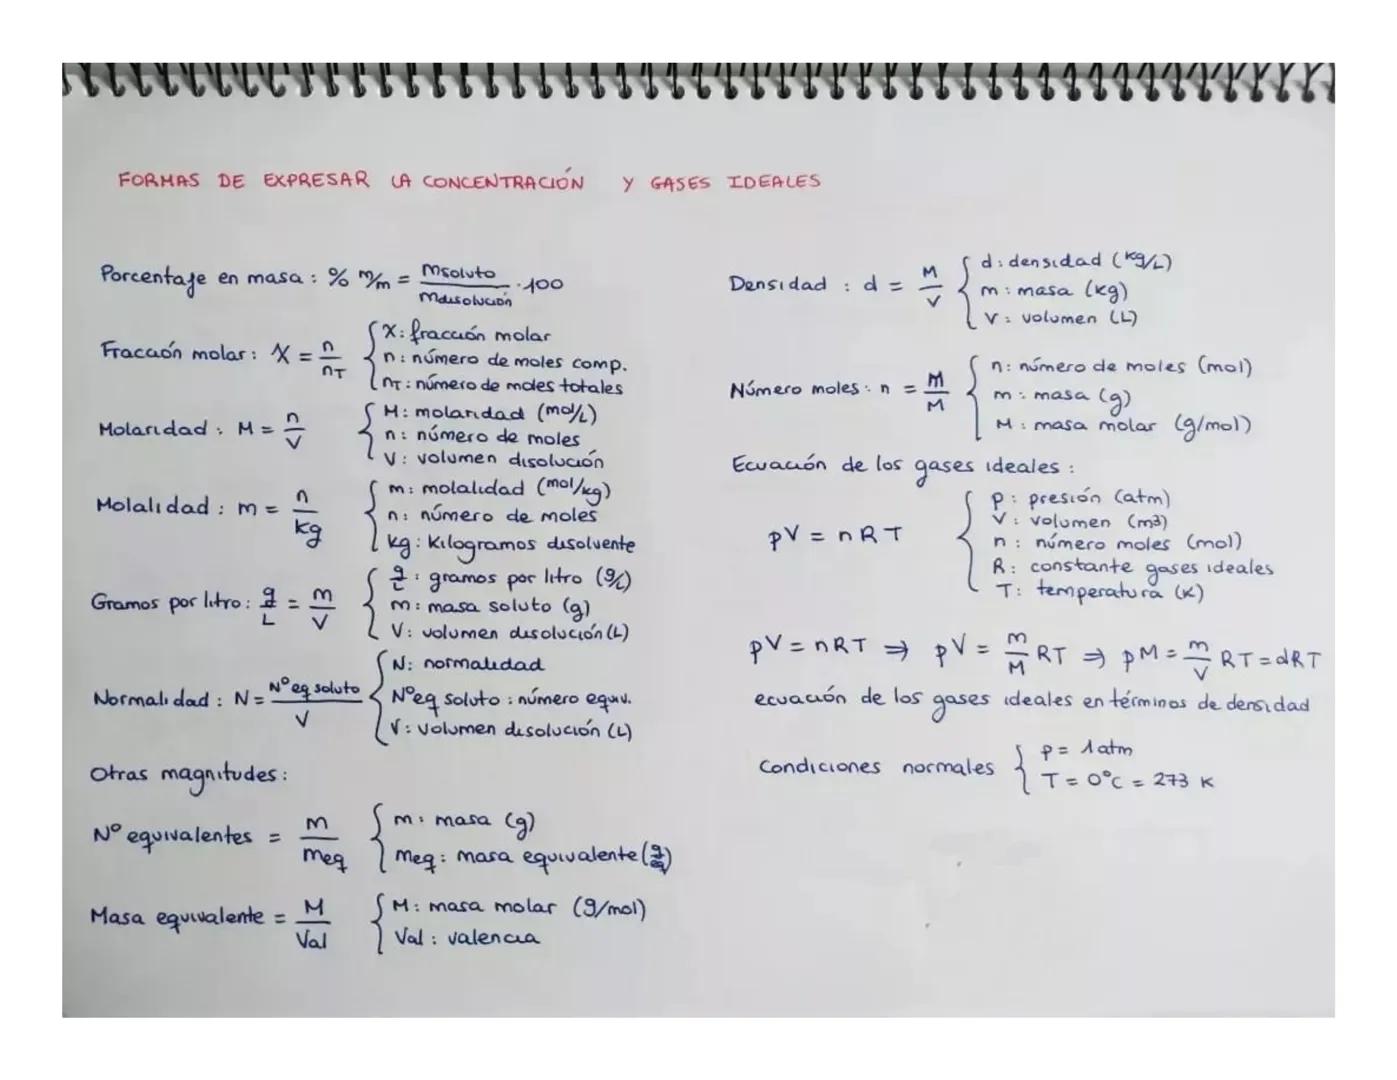 FORMAS DE EXPRESAR LA CONCENTRACIÓN Y GASES IDEALES
Porcentaje en masa : % m/m = msoluto / mdisolución · 100
Fracción molar : X = n / nT
X : fracción molar
n : número de moles comp.
nT : número de moles totales
Molaridad : M = n / V
M : molaridad (mol/L)
n : número de moles
V : volumen disolución
Molalidad : m = n / kg
m : molalidad (mol/kg)
n : número de moles
kg : Kilogramos disolvente
Gramos por litro : g/L = m / V
g/L : gramos por litro (g/L)
m : masa soluto (g)
V : volumen disolución (L)
Normalidad : N = Nº eq soluto / V
N : normalidad
Nºeq soluto : número equiv.
V : volumen disolución (L)
Otras magnitudes :
Nº equivalentes = m / meq
m : masa (g)
meq : masa equivalente (g/eq)
Masa equivalente = M / Val
M : masa molar (g/mol)
Val : valencia
Densidad : d = M / V
d : densidad (kg/L)
m : masa (kg)
V : volumen (L)
Número moles : n = m / M
n : número de moles (mol)
m : masa (g)
M : masa molar (g/mol)
Ecuación de los gases ideales :
pV = nRT
p : presión (atm)
V : volumen (m3)
n : número moles (mol)
R : constante gases ideales
T : temperatura (K)
pV = nRT ⇒ pV = m/M RT ⇒ pM = m/V RT = dRT
ecuación de los gases ideales en términos de densidad
Condiciones normales
p = 1 atm
T = 0ºC = 273 K